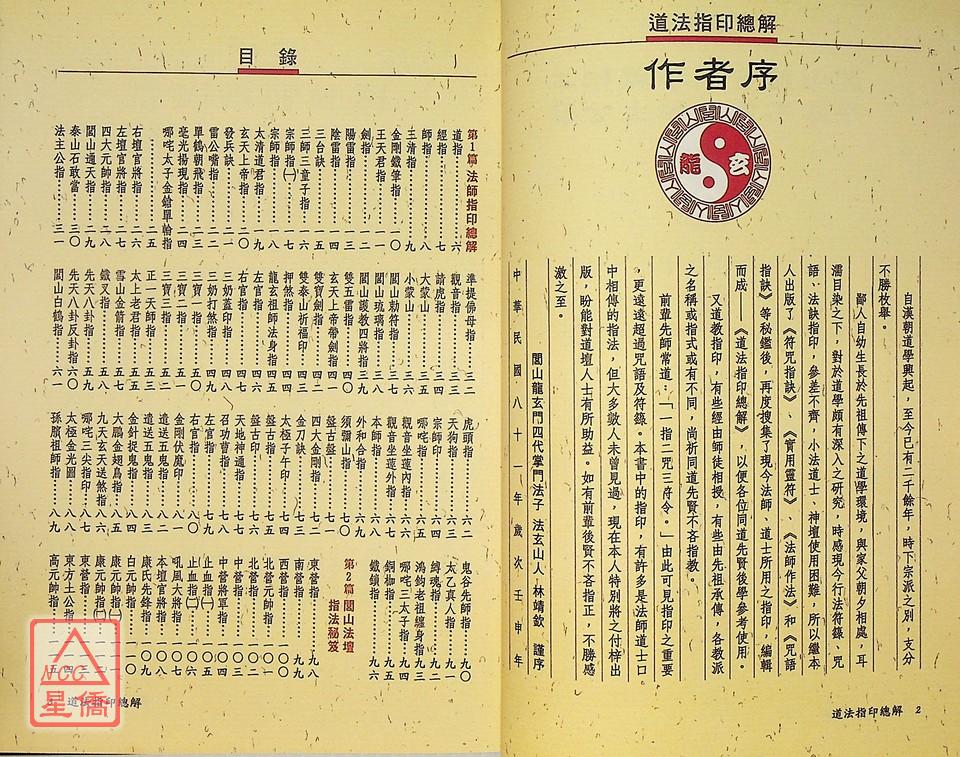 道法指印總解
作者序
玄龍
自漢朝道學興起，至今已有二千餘年，時下宗派之別，支分
不勝枚舉。
鄙人自幼生長於先祖傳下之道學環境，與家父朝夕相處，耳
濡目染之下，對於道學頗有深入之研究，時感現今行法符籙、咒
語、法訣指印，參差不齊，小法道士、神壇使用困難，所以繼本
人出版了《符咒指訣》、《實用靈符》、《法師作法》和《咒語
指訣》等秘鑑後，再度搜集了現今法師、道士所用之指印，編輯
而成——《道法指印總解》，以便各位同道先賢後學參考使用。
又道教指印，有些經由師徒相授，有些由先祖承傳，各教派
之名稱或指式或有不同，尚祈同道先賢不吝指教。
前輩先師常道：「一指二咒三符令。」由此可見指印之重要
，更遠遠超過咒語及符籙。本書中的指印，有許多是法師道士口
中相傳的指法，但大多數人未曾見過，現在本人特別將之付梓出
版，盼能對道壇人士有所助益。如有前輩後賢不吝指正，不勝感
激之至。
閭山龍玄門四代掌門法子 法玄山人 林靖欽 謹序
中華民國八十一年歲次壬申年
道法指印總解 2
目錄
第1篇 法師指印總解
道指……六
經指……七
師指……八
三清指……九
金剛鐵筆指……一〇
王天君指……一一
劍指……一二
陽雷指……一三
陰雷指……一四
三台訣……一五
三師三童子指……一六
宗師指㈠……一七
宗師指……一八
太清道君指……一九
玄天上帝指……二〇
發兵訣……二一
雷公嘴指……二二
單鶴朝飛指……二三
毫光揚現指……二四
哪吒太子金鎗單輪指
……二五
右壇官將指……二六
左壇官將指……二七
四大元帥指……二八
閭山通天指……二九
泰山石敢當……三〇
法主公指……三一
準提佛母指……三二
觀音指……三三
請虎指……三四
大蒙山……三五
小蒙山……三六
閭山勅符指……三七
閭山琉璃指……三八
閭山護教四將指……三九
雙五雷指……四〇
玄天上帝帶劍指……四一
雙寶劍指……四二
雙泰山祈福印……四三
押煞指……四四
龍玄祖師法身指……四五
左官指……四六
右官指……四七
三奶蓋印指……四八
三奶打煞指……四九
三寶一指……五〇
三寶二指……五一
三寶三指……五二
正一天師指……五三
太上老君指……五五
雪山金箭指……五六
鐵叉指……五七
先天八卦指……五九
先天八卦反卦指……六〇
閭山白鶴指……六一
虎頭指……六二
天狗指……六三
宗師印……六四
哪吒指……六五
觀音坐蓮內指……六六
觀音坐蓮外指……六七
本師指……六八
外和合指……六九
須彌山指……七〇
盤古古盤……七一
四大金剛指……七二
金刀訣……七三
太極子午印……七四
盤古古印……七五
天地神通指……七六
召功曹指……七八
左官指……七九
右官指……八〇
金剛伏魔印……八一
遣送五鬼指……八二
遣送五鬼指……八三
金針捉鬼指……八四
大鵬金翅鳥指……八五
九天玄天送煞指……八六
哪吒三尖指印……八七
太極金光圖……八八
孫臏祖師指……八九
鬼谷先師指……九〇
太乙真人指……九一
縛魂指……九二
鴻鈞老祖纏身指……九三
哪吒三太子指……九四
銅枷指……九五
鐵鎖指……九六
第2篇 閭山法壇指法秘笈
東營指……九八
南營指……九九
西營指……一〇〇
北營元帥指……一〇一
北營指……一〇二
中營指……一〇三
中營將軍指……一〇四
止血指㈠……一〇五
止血指㈡……一〇六
吼風大將指……一〇七
本壇官將指……一〇八
康氏先鋒指……一〇九
白元帥指……一一〇
康元帥指㈠……一一一
康元帥指㈡……一一二
東營指……一一三
東方土公指……一一四
高元帥指……一一五
3 道法指印總解
NCC
星僑